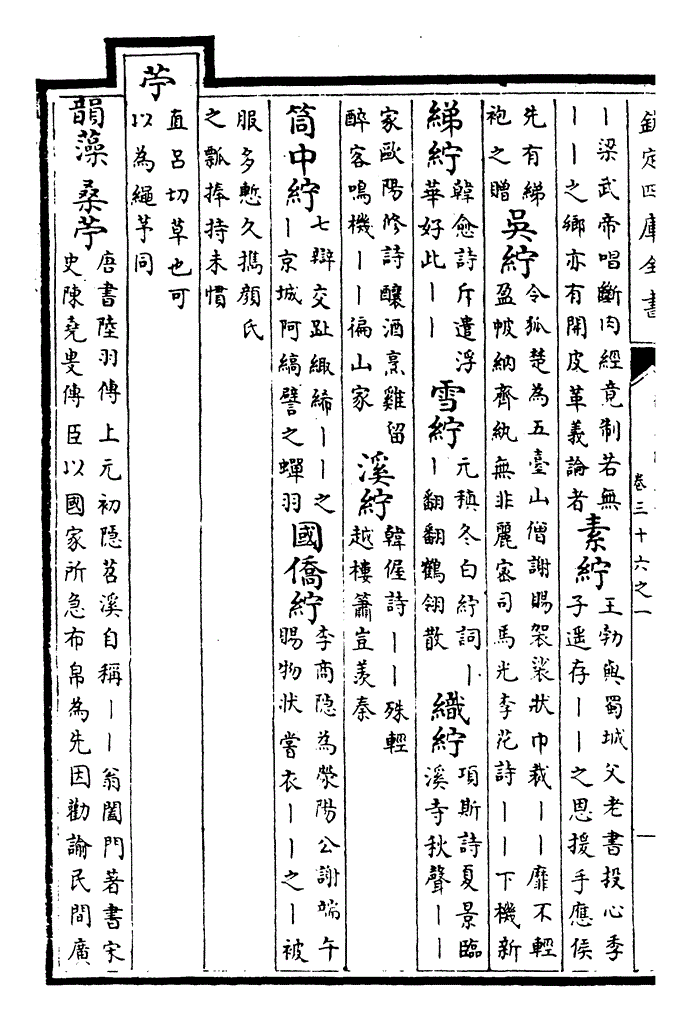 欽定四庫全書
卷三十六之一
丨梁武帝唱斷肉經竟制若無
丨丨之鄉亦有開皮革義論者
素紵
王勃與蜀城父老書投心季
子遥存丨丨之恩援手應侯
先有綈
袍之贈
吳紵
令狐楚為五臺山僧謝賜袈裟狀巾裁丨丨靡不輕
盈帔納齊紈無非麗宻司馬光李花詩丨丨下機新
綈紵
韓愈詩斥遣浮
華好此丨丨
雪紵
元稹冬白紵詞丨
丨翻翻鶴翎散
織紵
項斯詩夏景臨
溪寺秋聲丨丨
家歐陽修詩釀酒烹雞留
醉客鳴機丨丨徧山家
溪紵
韓偓詩丨丨殊輕
越樓簫豈羨秦
筒中紵
七辯交趾緅絺丨丨之
丨京城阿縞譬之蟬羽
國僑紵
李商隠為滎陽公謝端午
賜物狀嘗衣丨丨之丨被
服多慙久攜顔氏
之瓢捧持未慣
苧
直呂切草也可
以為繩芧同
韻藻
桑苧
唐書陸羽傳上元初隠苕溪自稱丨丨翁闔門著書宋
史陳堯叟傳臣以國家所急布帛為先因勸諭民間廣